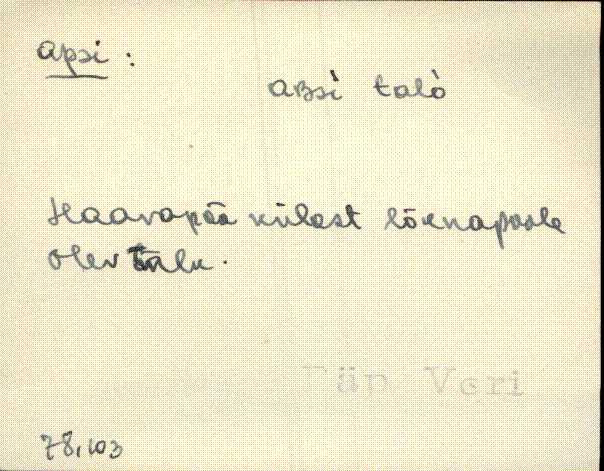 apsi :
aʙsi̬ talò
Haavapää külast lõunapoole
olev talu.
Räp Veri
78,103